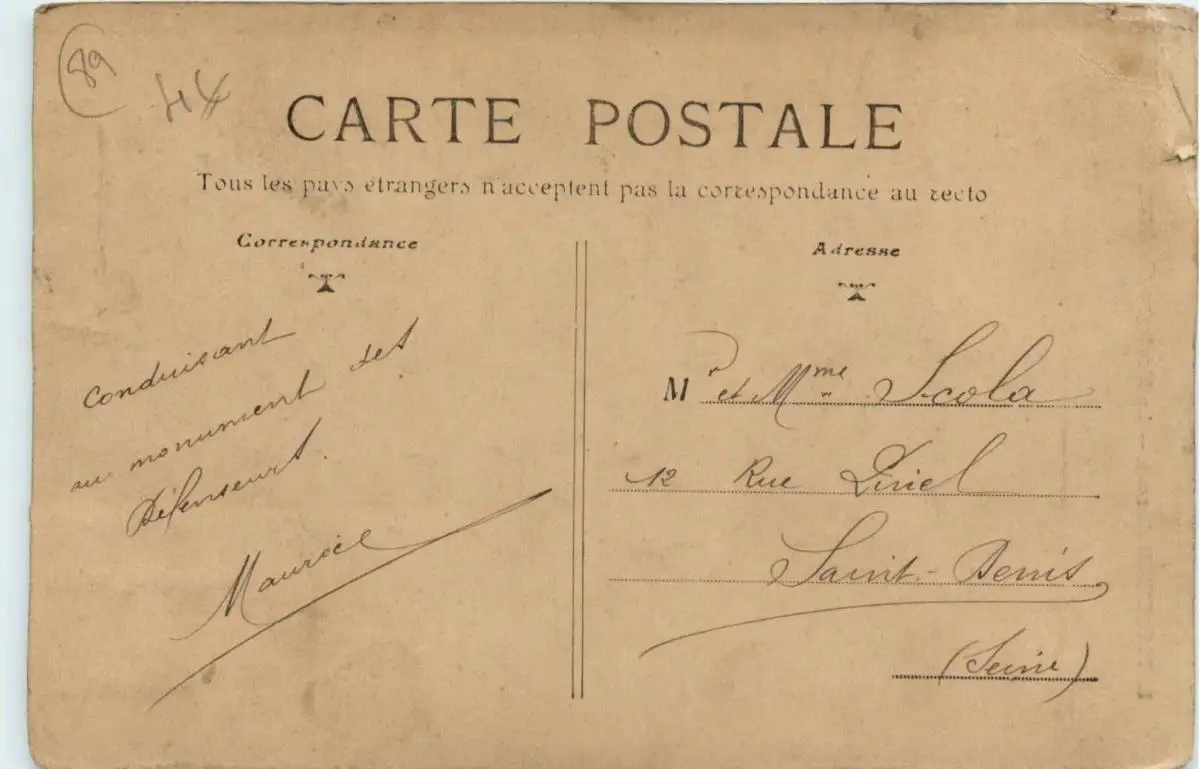 89
44
CARTE POSTALE
Tous les pays étrangers n'acceptent pas la correspondance au recto
Correspondance
Adresse
conduisant
au monument des
Défenseurs.
Maurice
Mr et Mme Scola
12 Rue Pinel
Saint-Denis
(Seine)